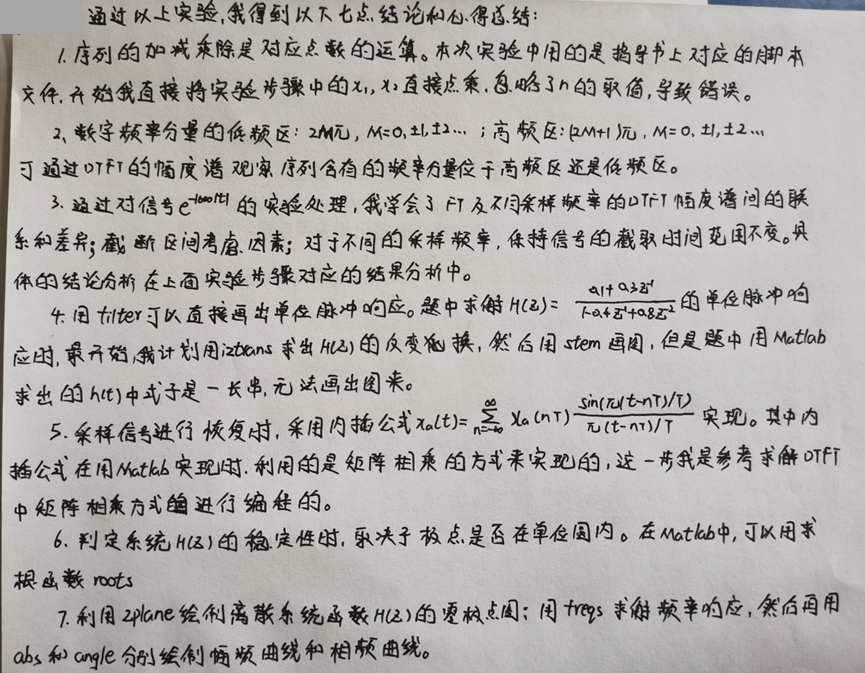 通过以上实验,我得到以下七点结论和心得总结:
1. 序列的加减乘除是对应点数的运算。本次实验中用的是指导书上对应的脚本
文件,开始我直接将实验步骤中的x₁,x₂直接点乘,忽略了n的取值,导致错误。
2. 数字频率分量的低频区: 2Mπ, M=0,±1,±2… ; 高频区:(2M+1)π, M=0,±1,±2…
可通过DTFT的幅度谱观察序列含有的频率分量位于高频区还是低频区。
3. 通过对信号e^{-1000|t|}的实验处理,我学会了FT及不同采样频率的DTFT幅度谱间的联
系和差异;截断区间考虑因素;对于不同的采样频率,保持信号的截取时间范围不变。具
体的结论分析在上面实验步骤对应的结果分析中。
4. 用filter可以直接画出单位脉冲响应。题中求解H(Z)= \frac{0.1+0.3Z^{-1}}{1-0.4Z^{-1}+0.8Z^{-2}}的单位脉冲响
应时,最开始,我计划用iztrans求出H(Z)的反变换,然后用stem画图,但是题中用Matlab
求出的h(t)中式子是一长串,无法画出图来。
5. 采样信号进行恢复时,采用内插公式x_a(t)=\sum_{n=-∞}^{∞} x_a(nT)\frac{sin(π(t-nT)/T)}{π(t-nT)/T} 实现。其中内
插公式在用Matlab实现时,利用的是矩阵相乘的方式来实现的,这一步我是参考求解DTFT
中矩阵相乘方式进行编程的。
6. 判定系统H(Z)的稳定性时,取决于极点是否在单位圆内。在Matlab中,可以用求
根函数roots
7. 利用zplane绘制离散系统函数H(Z)的零极点图;用freqs求解频率响应,然后再用
abs和angle分别绘制幅频曲线和相频曲线。